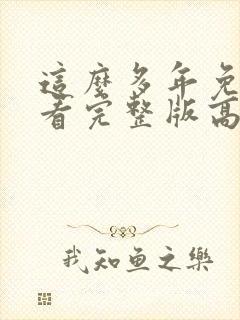 這麼多年免
看完整版高
我知鱼之樂